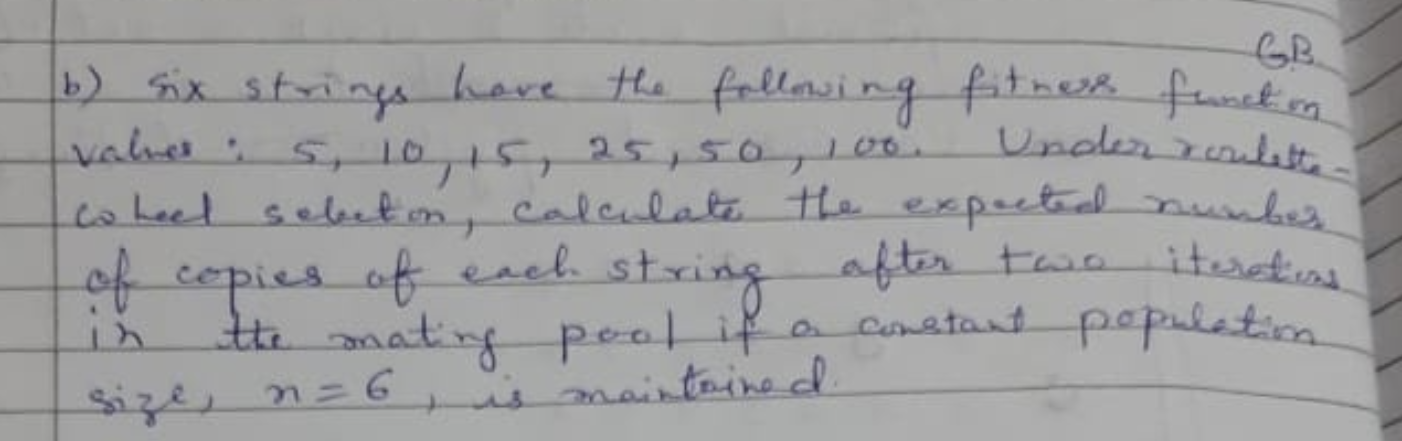 GB
b) Six strings have the following fitness function
values : 5, 10, 15, 25, 50, 100. Under roulette-
wheel selection, calculate the expected number
of copies of each string after two iterations
in the mating pool if a constant population
size, n = 6, is maintained.